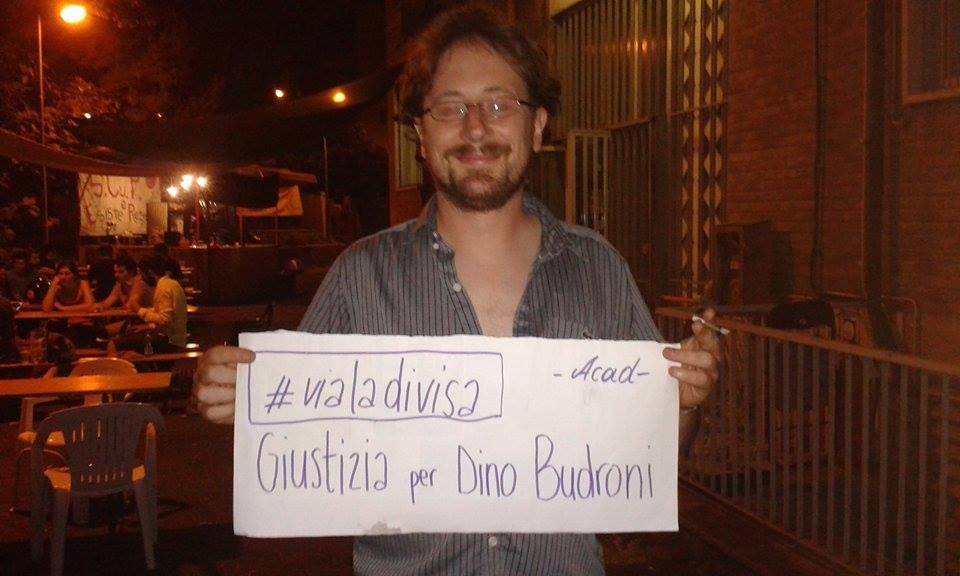 S.Cu.P
#vialadivisa
- Acad -
Giustizia per Dino Budroni